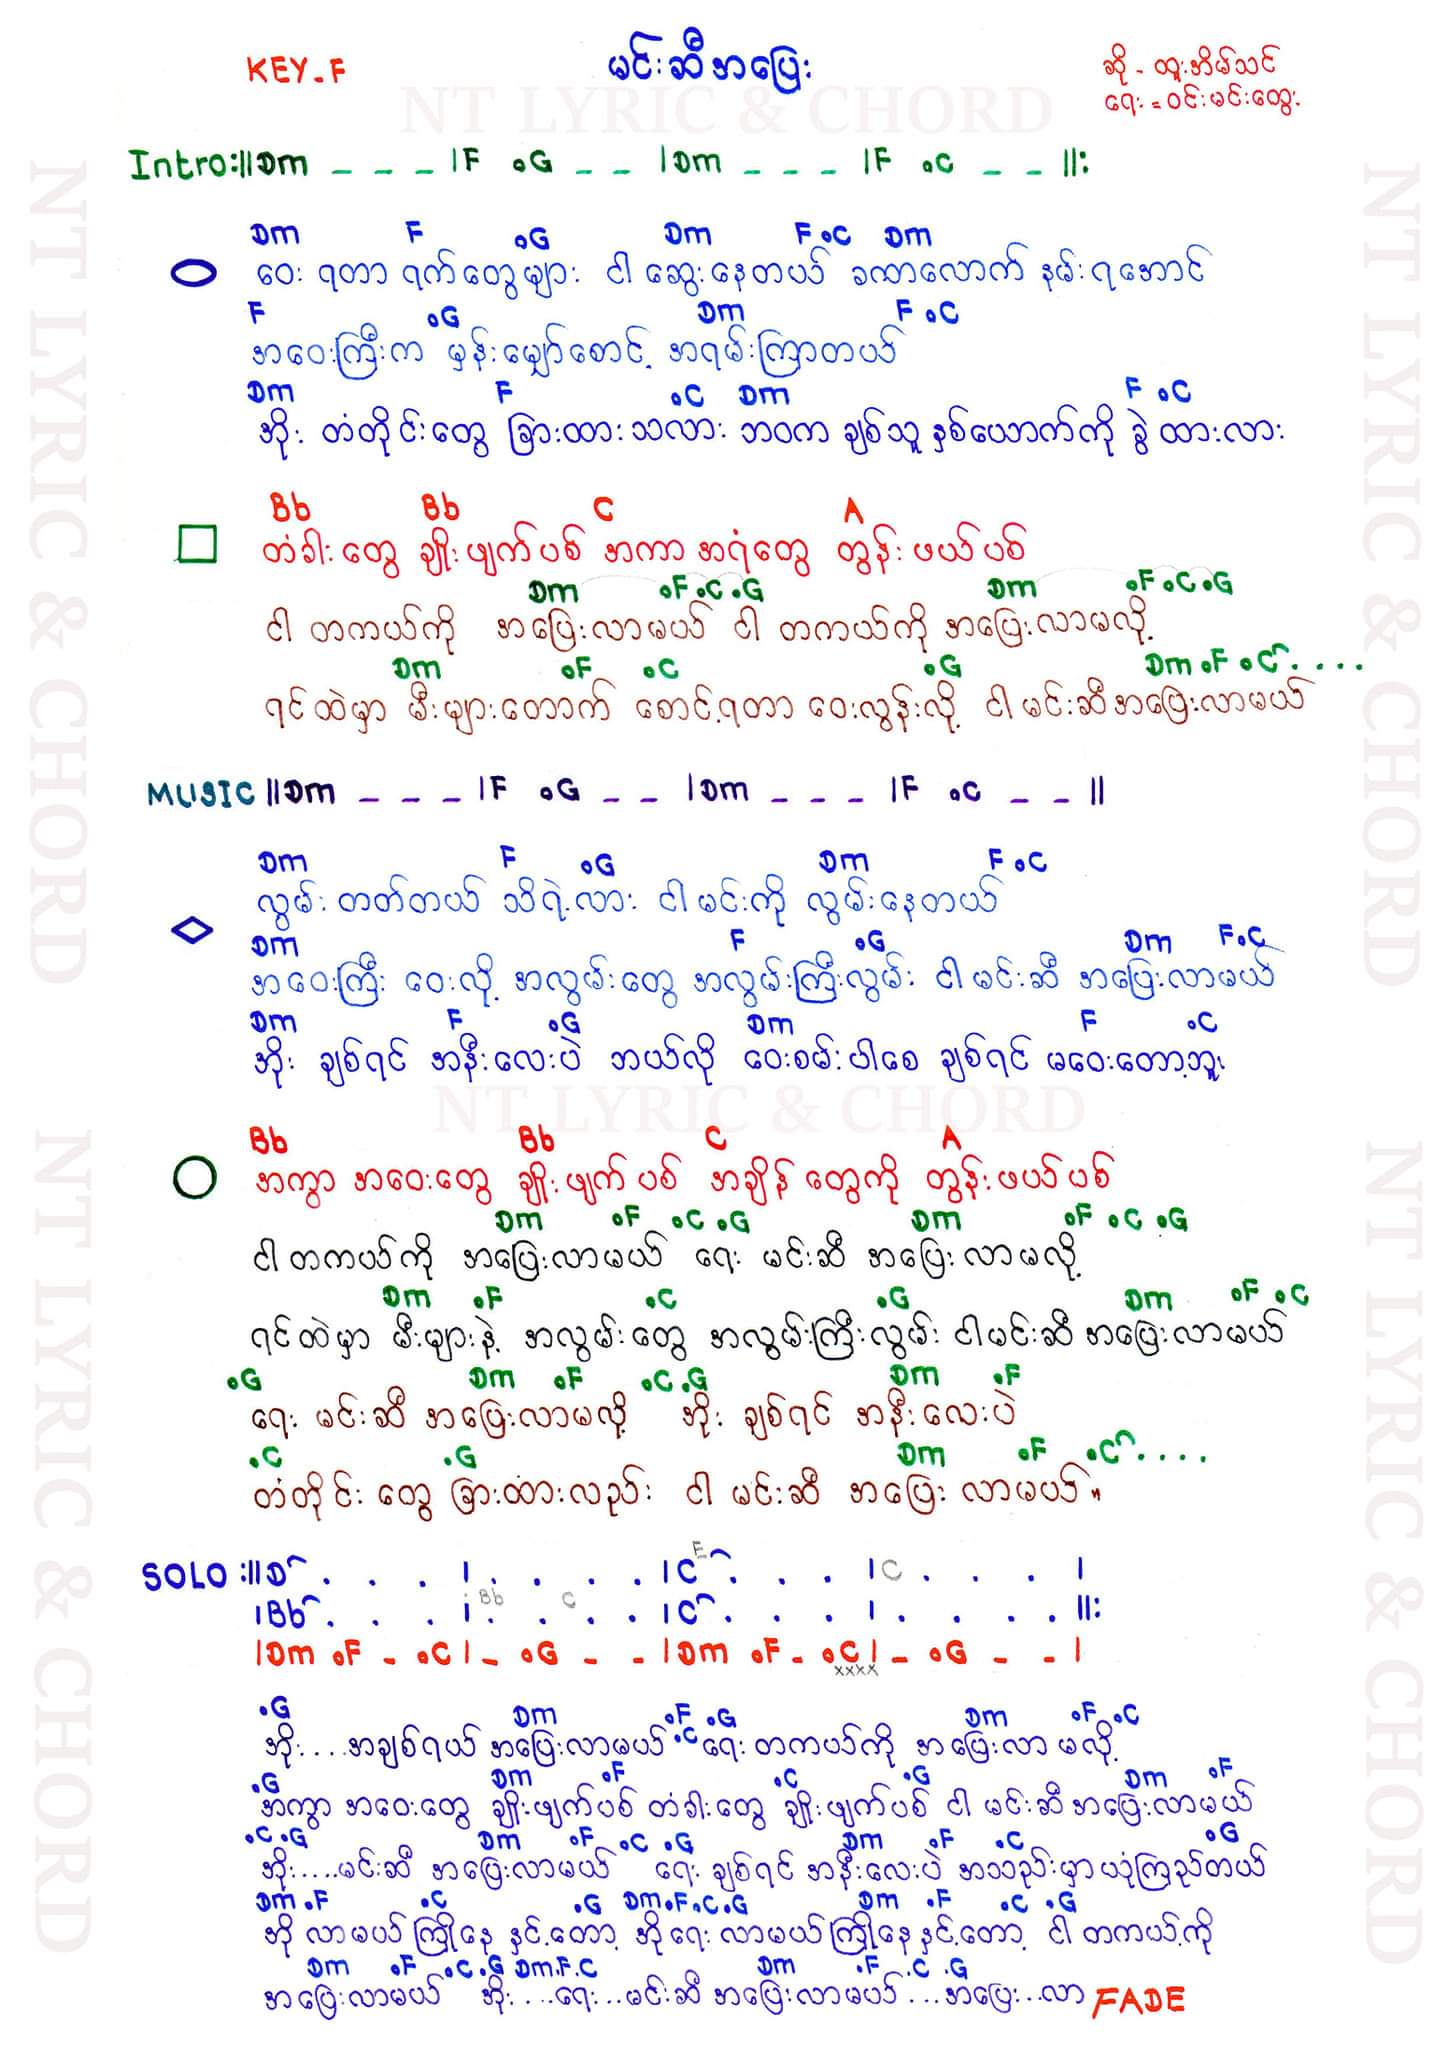 KEY-F
မင်းဆီအပြေး
ဆို - ထူးအိမ်သင်
ရေး = ဝင်းမင်းထွေး
NT LYRIC & CHORD
Intro:||Dm _ _ _ |F .G _ _ |Dm _ _ _ |F .C _ _ ||:
Dm F .G Dm F .C Dm
ဝေး ရတာ ရက်တွေများ ငါ ဆွေးနေတယ် ခဏလောက် နမ်းရအောင်
F .G Dm F .C
အဝေးကြီးက မှန်းမျှော်စောင့် အရမ်းကြာတယ်
Dm F .C Dm F .C
အိုး တံတိုင်းတွေ ခြားထားသလား ဘဝက ချစ်သူ နှစ်ယောက်ကို ခွဲ ထားလား
Bb Bb C A
တံခါးတွေ ချိုးဖျက်ပစ် အကာ အရံတွေ တွန်းဖယ်ပစ်
Dm .F .C .G Dm .F .C .G
ငါ တကယ်ကို အပြေးလာမယ် ငါ တကယ်ကို အပြေးလာမလို့
Dm .F .C .G Dm .F .C ....
ရင်ထဲမှာ မီးများတောက် စောင့်ရတာ ဝေးလွန်းလို့ ငါ မင်းဆီအပြေးလာမယ်
MUSIC ||Dm _ _ _ |F .G _ _ |Dm _ _ _ |F .C _ _ ||
Dm F .G Dm F .C
လွမ်း တတ်တယ် သိရဲ့လား ငါ မင်းကို လွမ်းနေတယ်
Dm F .G Dm F .C
အဝေးကြီး ဝေးလို့ အလွမ်းတွေ အလွမ်းကြီးလွမ်း ငါ မင်းဆီ အပြေးလာမယ်
Dm F .G Dm F .C
အိုး ချစ်ရင် အနီးလေးပဲ ဘယ်လို ဝေးစမ်းပါစေ ချစ်ရင် မဝေးတော့ဘူး
NT LYRIC & CHORD
Bb Bb C A
အကွာ အဝေးတွေ ချိုးဖျက်ပစ် အချိန်တွေကို တွန်းဖယ်ပစ်
Dm .F .C .G Dm .F .C .G
ငါ တကယ်ကို အပြေးလာမယ် ရေး မင်းဆီ အပြေးလာမလို့
Dm .F .C .G Dm .F .C
ရင်ထဲမှာ မီးများနဲ့ အလွမ်းတွေ အလွမ်းကြီးလွမ်း ငါမင်းဆီ အပြေးလာမယ်
.G Dm .F .C .G Dm .F
ရေး မင်းဆီ အပြေးလာမလို့ အိုး ချစ်ရင် အနီးလေးပဲ
.C .G Dm .F .C ....
တံတိုင်းတွေ ခြားထားလည်း ငါ မင်းဆီ အပြေး လာမယ်"
SOLO :||D . . . | . . . . |C E . . . |C . . . |
|Bb . . . | Bb . . C . . |C . . . | . . . . ||:
|Dm .F - .C |- .G - - |Dm .F - .C |- .G - - |
xxxx
.G Dm .F .C .G Dm .F .C
အိုး....အချစ်ရယ် အပြေးလာမယ် ရေး တကယ်ကို အပြေးလာမလို့
.G Dm .F .C .G Dm .F
အကွာ အဝေးတွေ ချိုးဖျက်ပစ် တံခါးတွေ ချိုးဖျက်ပစ် ငါ မင်းဆီ အပြေးလာမယ်
.C .G Dm .F .C .G Dm .F .C .G
အိုး....မင်းဆီ အပြေးလာမယ် ရေး ချစ်ရင် အနီးလေးပဲ အသည်းမှာ ယုံကြည်တယ်
Dm .F .C .G Dm .F .C .G Dm .F .C .G
အို လာမယ် ကြိုနေ နှင့်တော့ အိုရေး လာမယ်ကြိုနေနှင့်တော့ ငါ တကယ့်ကို
Dm .F .C .G Dm .F .C Dm .F .C .G
အပြေးလာမယ် အိုး....ရေး...မင်းဆီ အပြေးလာမယ်...အပြေး...လာ FADE
NT LYRIC & CHORD
NT LYRIC & CHORD
NT LYRIC & CHORD
NT LYRIC & CHORD